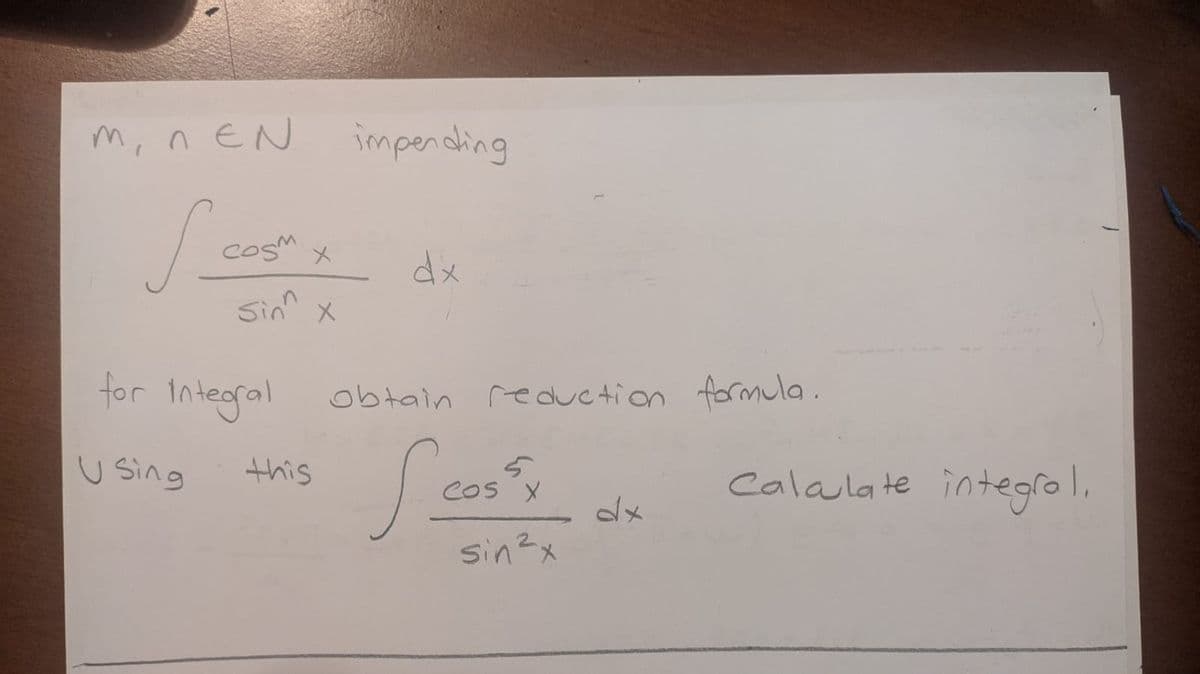 m, n ∈ N impending
∫ cos^m x / sin^n x dx
for Integral obtain reduction formula.
Using this ∫ cos^5 x / sin^2 x dx Calculate integral.